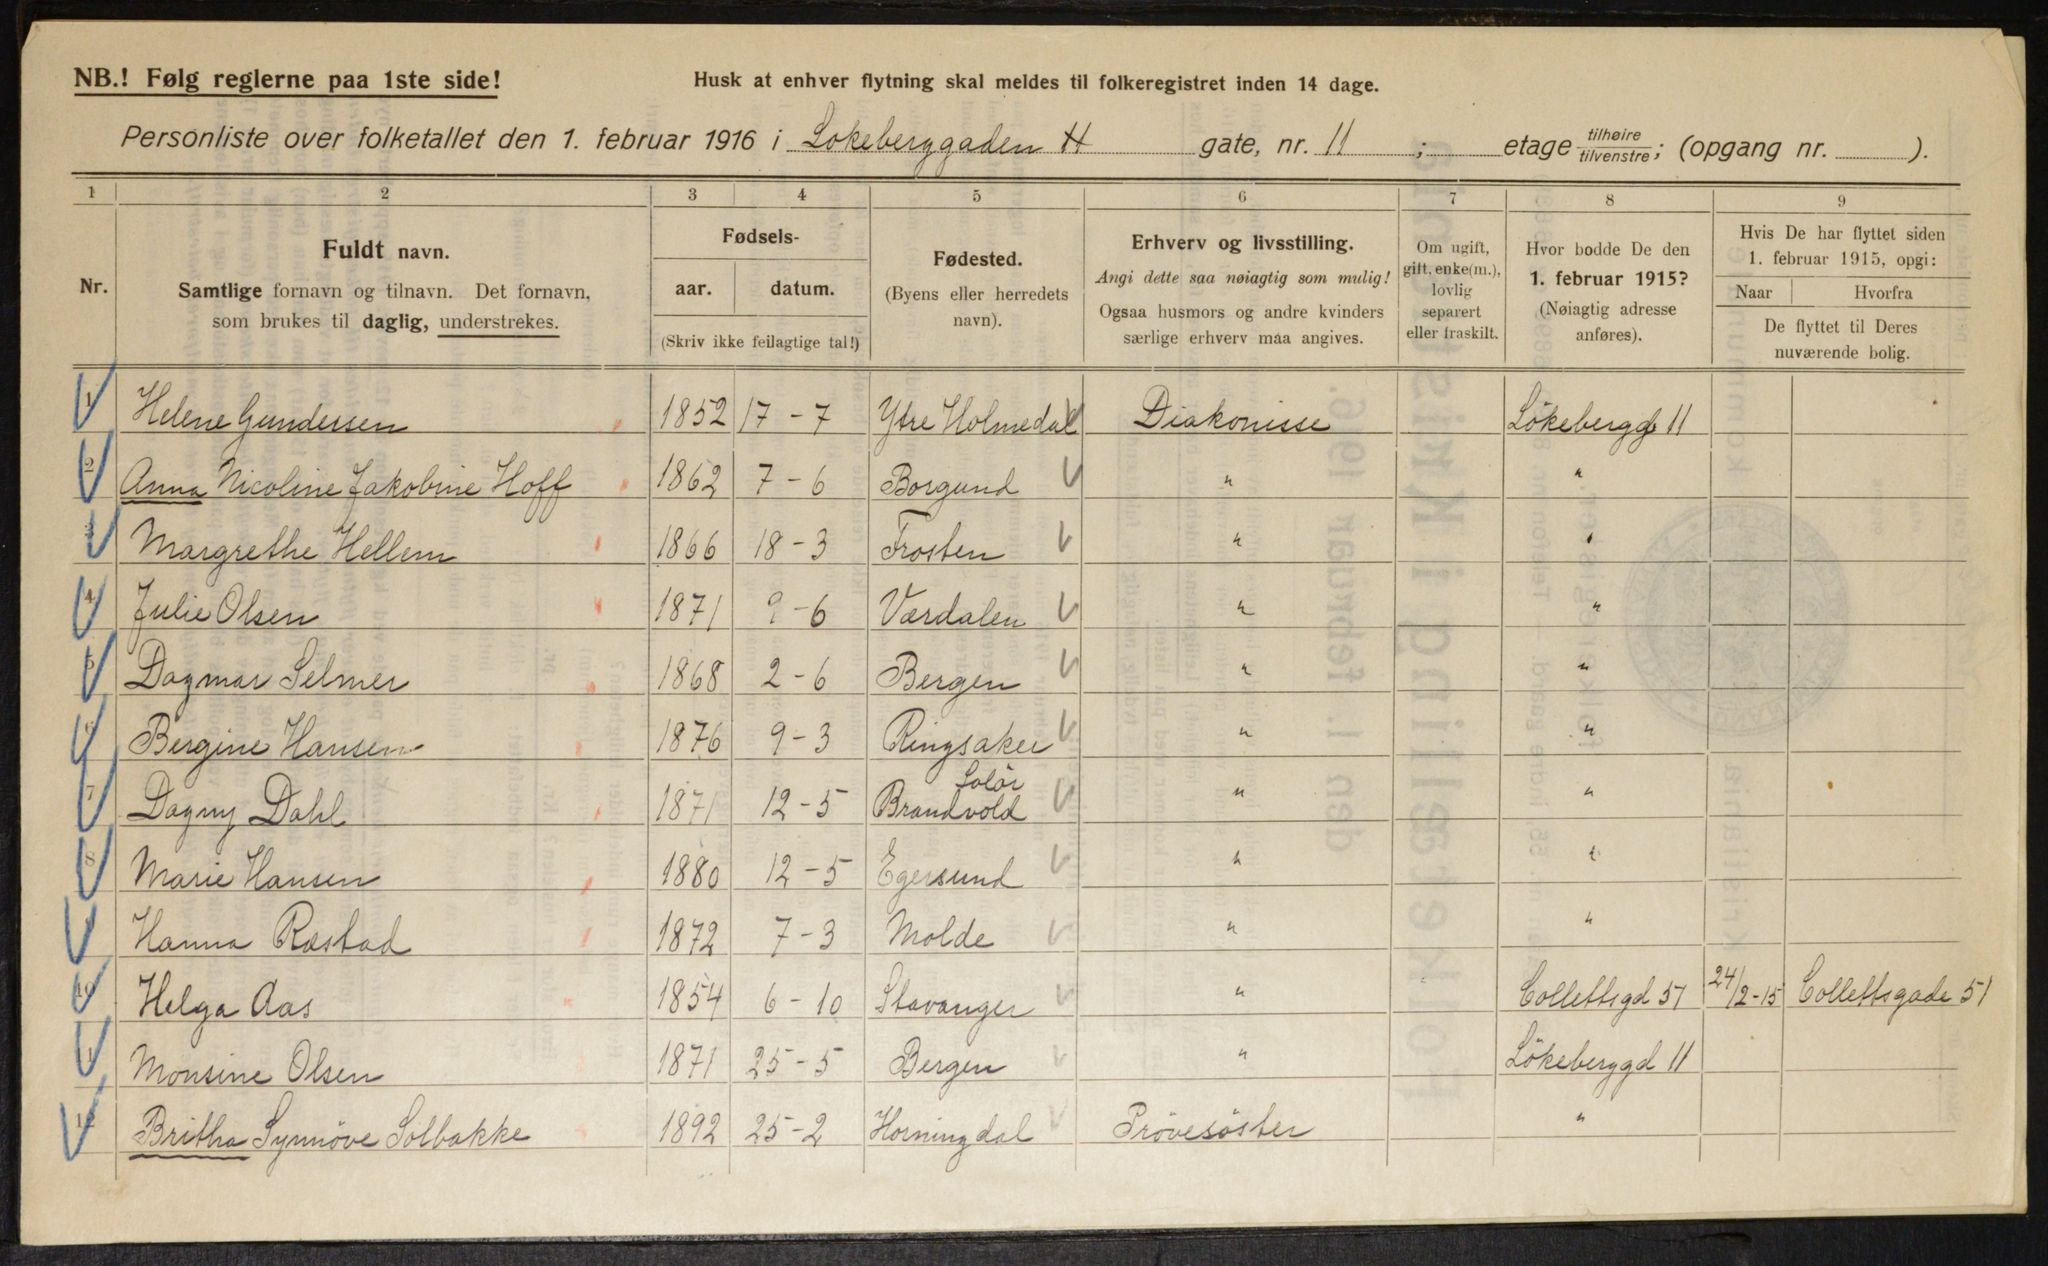 NB.! Følg reglerne paa 1ste side!
Husk at enhver flytning skal meldes til folkeregistret inden 14 dage.
Personliste over folketallet den 1. februar 1916 i Lökeberggaden 11 gate, nr. 11 ; etage tilhøire/tilvenstre; (opgang nr. ).
1 2 3 4 5 6 7 8 9
Nr.
Fuldt navn.
Samtlige fornavn og tilnavn. Det fornavn,
som brukes til daglig, understrekes.
Fødsels-
aar. datum.
(Skriv ikke feilagtige tal!)
Fødested.
(Byens eller herredets
navn).
Erhverv og livsstilling.
Angi dette saa nøiagtig som mulig!
Ogsaa husmors og andre kvinders
særlige erhverv maa angives.
Om ugift,
gift, enke(m.),
lovlig
separert
eller fraskilt.
Hvor bodde De den
1. februar 1915?
(Nøiagtig adresse
anføres).
Hvis De har flyttet siden
1. februar 1915, opgi:
Naar Hvorfra
De flyttet til Deres
nuværende bolig.
1 Helene Gundersen 1852 17-7 Ytre Holmedal Diakonisse Lökebergg 11
2 Anna Nicoline Jakobine Hoff 1862 7-6 Borgund " "
3 Margrethe Hellem 1866 18-3 Frosten " "
4 Julie Olsen 1871 9-6 Værdalen " "
5 Dagmar Selmer 1868 2-6 Bergen " "
6 Bergine Hansen 1876 9-3 Ringsaker " "
7 Dagny Dahl 1871 12-5 Solör Brandvold " "
8 Marie Hansen 1880 12-5 Egersund " "
9 Hanna Røstad 1872 7-3 Molde " "
10 Helga Aas 1854 6-10 Stavanger " Collettsgd 51 24/2-15 Collettsgade 51
11 Monsine Olsen 1871 25-5 Bergen " Lökeberggd 11
12 Britha Synnöve Solbakke 1892 25-2 Horningdal Prövesöster "